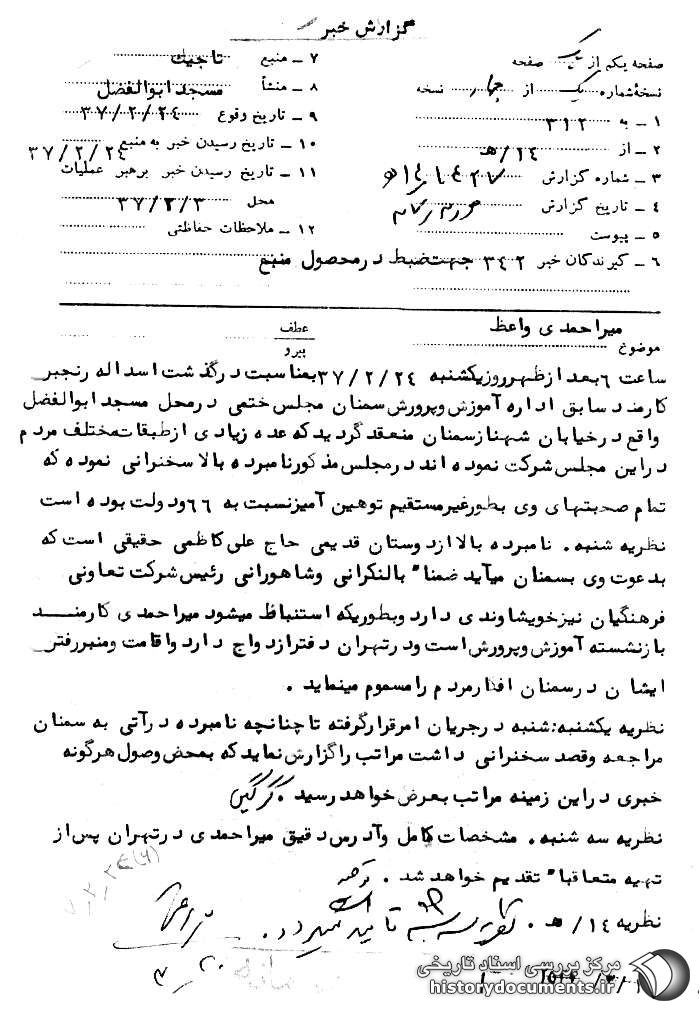 گزارش خبر
صفحه یکم از یک صفحه
نسخهٔ شماره یک از چهار نسخه
۱ ـ به ۳۱۲
۲ ـ از ۱۴/هـ
۳ ـ شماره گزارش
۴ ـ تاریخ گزارش
۵ ـ پیوست
۶ ـ گیرندگان خبر ۳۴۲ جهت ضبط در محصول منبع
۷ ـ منبع تاجیک
۸ ـ منشأ مسجد ابوالفضل
۹ ـ تاریخ وقوع ۳۷/۲/۲۴
۱۰ ـ تاریخ رسیدن خبر به منبع ۳۷/۲/۲۴
۱۱ ـ تاریخ رسیدن خبر برهبر عملیات
محل ۳۷/۲/۳
۱۲ ـ ملاحظات حفاظتی
موضوع میراحمدی واعظ
عطف
پیرو
ساعت ۶ بعد از ظهر روز یکشنبه ۳۷/۲/۲۴ بمناسبت درگذشت اسداله رنجبر
کارمند سابق اداره آموزش وپرورش سمنان مجلس ختمی درمحل مسجد ابوالفضل
واقع درخیابان شهناز سمنان منعقد گردید که عده زیادی ازطبقات مختلف مردم
دراین مجلس شرکت نموده اند درمجلس مذکور نامبرده بالا سخنرانی نموده که
تمام صحبتهای وی بطور غیرمستقیم توهین آمیز نسبت به ۶۶ ودولت بوده است
نظریه شنبه . نامبرده بالا ازدوستان قدیمی حاج علی کاظمی حقیقی است که
بدعوت وی بسمنان میآید ضمنا" بالنکرانی وشاهورانی رئیس شرکت تعاونی
فرهنگیان نیز خویشاوندی دارد وبطوریکه استنباط میشود میراحمدی کارمند
بازنشسته آموزش وپرورش است ودرتهران دفتر ازدواج دارد واقامت ومنبررفتن
ایشان درسمنان افکار مردم را مسموم مینماید .
نظریه یکشنبه: شنبه درجریان امر قرارگرفته تا چنانچه نامبرده درآتی به سمنان
مراجعه وقصد سخنرانی داشت مراتب را گزارش نماید که بمحض وصول هرگونه
خبری دراین زمینه مراتب بعرض خواهد رسید .
نظریه سه شنبه . مشخصات کامل وآدرس دقیق میراحمدی درتهران پس از
تهیه متعاقبا" تقدیم خواهد شد .
نظریه ۱۴/هـ . نظریه سه شنبه تایید میگردد .
مرکز بررسی اسناد تاریخی
historydocuments.ir